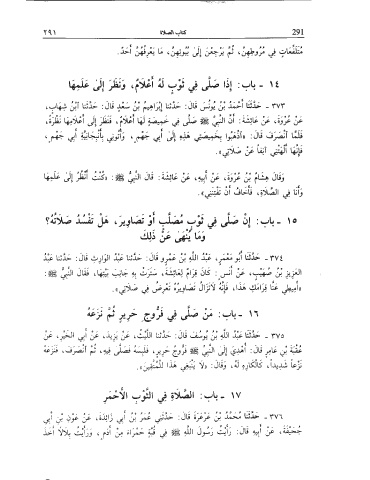 291 كتاب الصلاة ٢٩١
مُتَلَفِّعَاتٍ فِي مُرُوطِهِنَّ، ثُمَّ يَرْجِعْنَ إِلَى بُيُوتِهِنَّ، مَا يَعْرِفُهُنَّ أَحَدٌ.
١٤ - باب: إِذَا صَلَّى فِي ثَوْبٍ لَهُ أَعْلَامٌ، وَنَظَرَ إِلَى عَلَمِهَا
٣٧٣ - حَدَّثَنَا أَحْمَدُ بْنُ يُونُسَ قَالَ: حَدَّثَنَا إِبْرَاهِيمُ بْنُ سَعْدٍ قَالَ: حَدَّثَنَا ابْنُ شِهَابٍ،
عَنْ عُرْوَةَ، عَنْ عَائِشَةَ: أَنَّ النَّبِيَّ ﷺ صَلَّى فِي خَمِيصَةٍ لَهَا أَعْلَامٌ، فَنَظَرَ إِلَى أَعْلَامِهَا نَظْرَةً،
فَلَمَّا انْصَرَفَ قَالَ: «اذْهَبُوا بِخَمِيصَتِي هٰذِهِ إِلَى أَبِي جَهْمٍ، وَأْتُونِي بِأَنْبِجَانِيَّةِ أَبِي جَهْمٍ،
فَإِنَّهَا أَلْهَتْنِي آنِفاً عَنْ صَلَاتِي».
وَقَالَ هِشَامُ بْنُ عُرْوَةَ، عَنْ أَبِيهِ، عَنْ عَائِشَةَ: قَالَ النَّبِيُّ ﷺ: «كُنْتُ أَنْظُرُ إِلَى عَلَمِهَا
وَأَنَا فِي الصَّلَاةِ، فَأَخَافُ أَنْ تَفْتِنَنِي».
١٥ - باب: إِنْ صَلَّى فِي ثَوْبٍ مُصَلَّبٍ أَوْ تَصَاوِيرَ، هَلْ تَفْسُدُ صَلَاتُهُ؟
وَمَا يُنْهَى عَنْ ذٰلِكَ
٣٧٤ - حَدَّثَنَا أَبُو مَعْمَرٍ، عَبْدُ اللَّهِ بْنُ عَمْرٍو قَالَ: حَدَّثَنَا عَبْدُ الوَارِثِ قَالَ: حَدَّثَنَا عَبْدُ
العَزِيزِ بْنُ صُهَيْبٍ، عَنْ أَنَسٍ: كَانَ قِرَامٌ لِعَائِشَةَ، سَتَرَتْ بِهِ جَانِبَ بَيْتِهَا، فَقَالَ النَّبِيُّ ﷺ:
«أَمِيطِي عَنَّا قِرَامَكِ هٰذَا، فَإِنَّهُ لَا تَزَالُ تَصَاوِيرُهُ تَعْرِضُ فِي صَلَاتِي».
١٦ - باب: مَنْ صَلَّى فِي فَرُّوجِ حَرِيرٍ ثُمَّ نَزَعَهُ
٣٧٥ - حَدَّثَنَا عَبْدُ اللَّهِ بْنُ يُوسُفَ قَالَ: حَدَّثَنَا اللَّيْثُ، عَنْ يَزِيدَ، عَنْ أَبِي الخَيْرِ، عَنْ
عُقْبَةَ بْنِ عَامِرٍ قَالَ: أُهْدِيَ إِلَى النَّبِيِّ ﷺ فَرُّوجُ حَرِيرٍ، فَلَبِسَهُ فَصَلَّى فِيهِ، ثُمَّ انْصَرَفَ، فَنَزَعَهُ
نَزْعاً شَدِيداً، كَالْكَارِهِ لَهُ، وَقَالَ: «لَا يَنْبَغِي هٰذَا لِلْمُتَّقِينَ».
١٧ - باب: الصَّلَاةِ فِي الثَّوْبِ الْأَحْمَرِ
٣٧٦ - حَدَّثَنَا مُحَمَّدُ بْنُ عَرْعَرَةَ قَالَ: حَدَّثَنِي عُمَرُ بْنُ أَبِي زَائِدَةَ، عَنْ عَوْنِ بْنِ أَبِي
جُحَيْفَةَ، عَنْ أَبِيهِ قَالَ: رَأَيْتُ رَسُولَ اللَّهِ ﷺ فِي قُبَّةٍ حَمْرَاءَ مِنْ أَدَمٍ، وَرَأَيْتُ بِلَالاً أَخَذَ